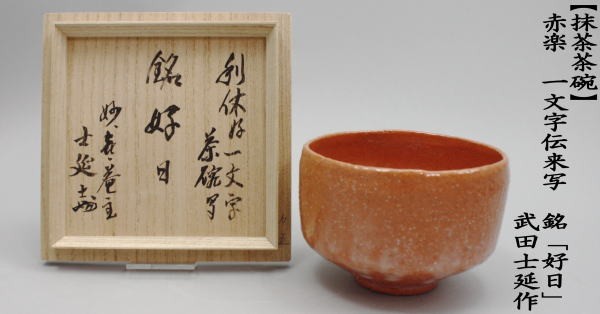 【抹茶茶碗】
赤楽 一文字伝来写
銘「好日」
武田士延作
利休好一文字
茶碗写
銘 好日
妙喜庵主
士延